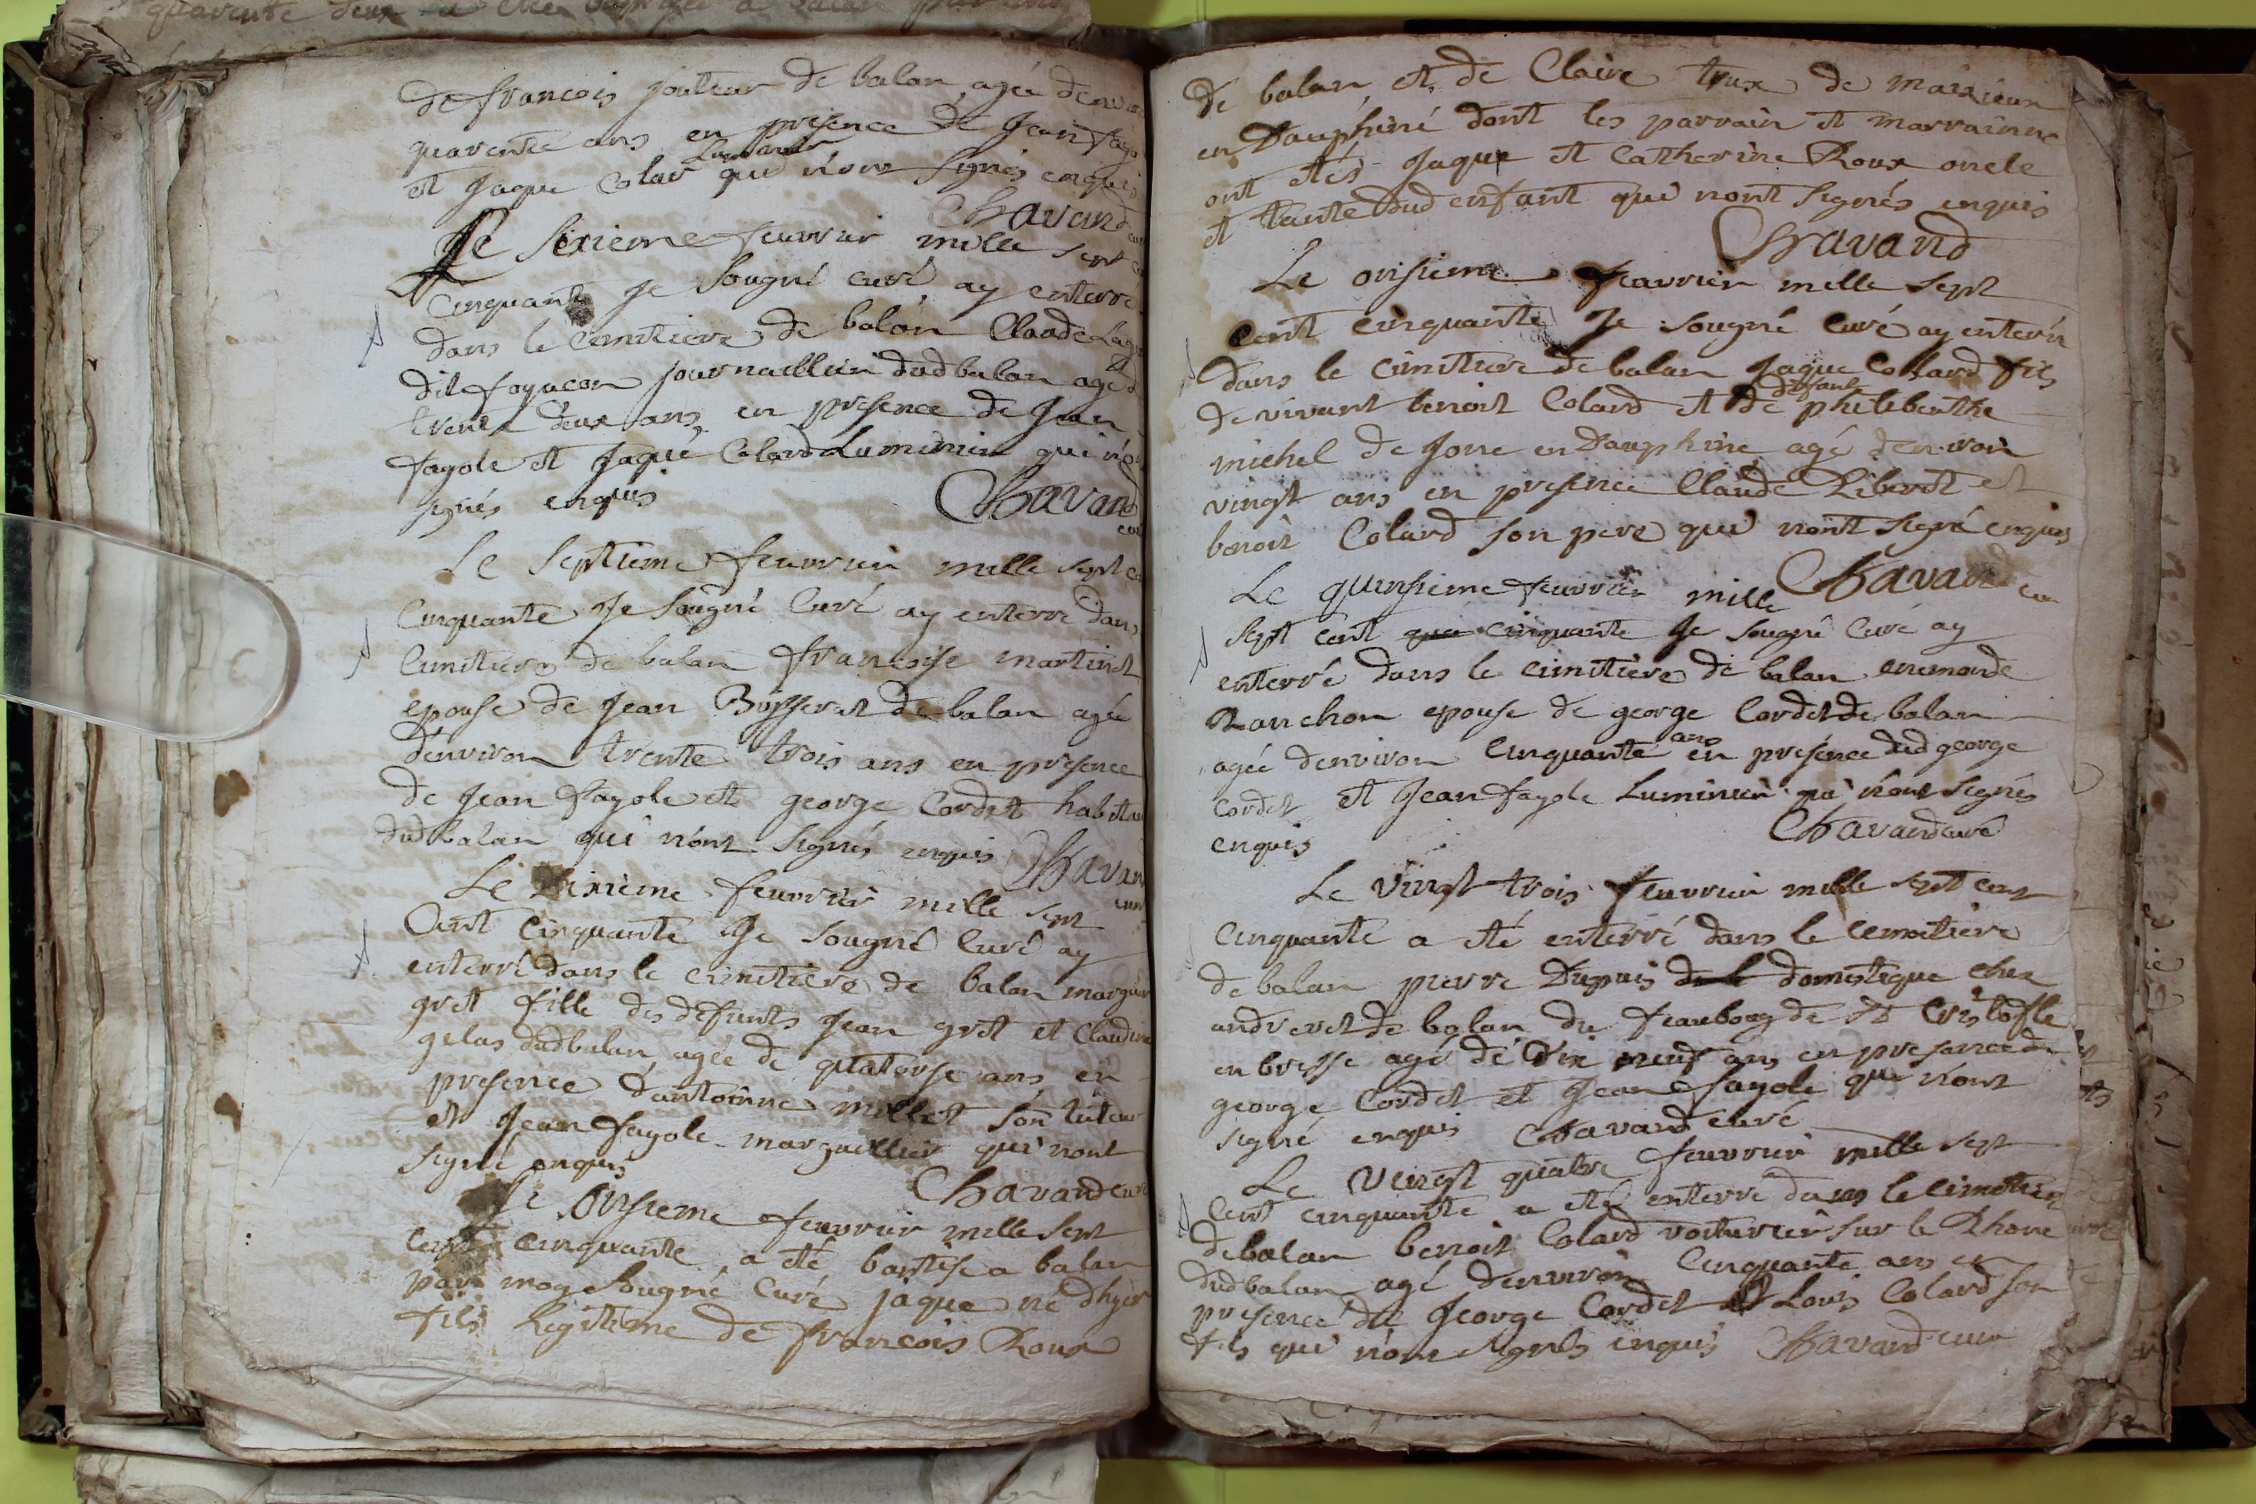 de francois jouteur de balan agée denviron
quarente ans en presence de Jean fayo
Luminier
et Jaque Colar qui n'ont signés enquis
Chavand
Le sixieme feuvrier mille sept
cinquante Je sougné curé ay enterré
dans le cemitiere de balan Claude
dit foyacon journaellier dudbalan agé
trente deux ans en presence de Jean
fayole et Jaque Colard Luminier qui n'ont
signés enquis Chavand
Le septieme feuvrier mille sept
cinquante Je sougné curé ay enterré dans
cimitiere de balan francoise martinet
epouse de Jean Boysseret de balan agée
denviron trente trois ans en presence
de Jean fayole et george Cordet habitan
dudbalan qui n'ont signés enquis Chavan
Le dixieme feuvrier mille sept
Cent Cinquante Je sougné curé ay
enterré dans le cimitiere de balan
gret fille des defunts Jean gret et Claudine
gelas dudbalan agée de quatorse ans en
presence d'antoinne millet son tuteur
et Jean fayole marguellier qui n'ont
signé enquis
Chavand curé
Le onsieme feuvrier mille sept
cent cinquante a eté bantisé a balan
par moy sougné curé jaque né dhyer
fils legitime de francois Roux
de balan et de Claire trux de
en Dauphiné dont les parrain et marrainne
ont etés Jaque et Catherine Roux oncle
et tante dud enfant qui nont signés enquis
Chavand
Le onsieme feavrier mille sept
cent cinquante Je sougné curé ay enterér
dans le cimitiere de balan Jaque Colard fils
defaute
de vivant benoit Colard et de philebenthe
michel de Jone en Dauphine agé denviron
vingt ans en presence Claude Liberet et
benoit Colard son pere qui n'ont signé enquis
Chavand cur
Le quinsieme feuvrier mille
sept cent cinquante Je sougné curé ay
enterré dans le cimitiere de balan enemonde
Ranchon epouse de george Cordet de balan
ans
agée denviron cinquante en présence dud george
Cordet et Jean fayole Luminier qui n'ont signés
enquis Chavand curé
Le vingt trois feuvrier mille sept cent
cinquante a eté enterré dans le cemetiere
de balan pierre Dupuis domestique chez
andreret de balan du feaubourg de St Cristofle
en bresse agé de dix neuf ans en presence de
george Cordet et Jean fayole qui n'ont
signé enquis Chavand curé
Le Veingt quatre feuvrier mille sept
Cent cinquante a eté enterré dans le cimetiere
debalan benoit Colard voiturier sur le Rhone
dudbalan agé denviron Cinquante ans en
presence de george Cordet et Louis Colard son
fils qui n'ont signés enquis Chavand cure